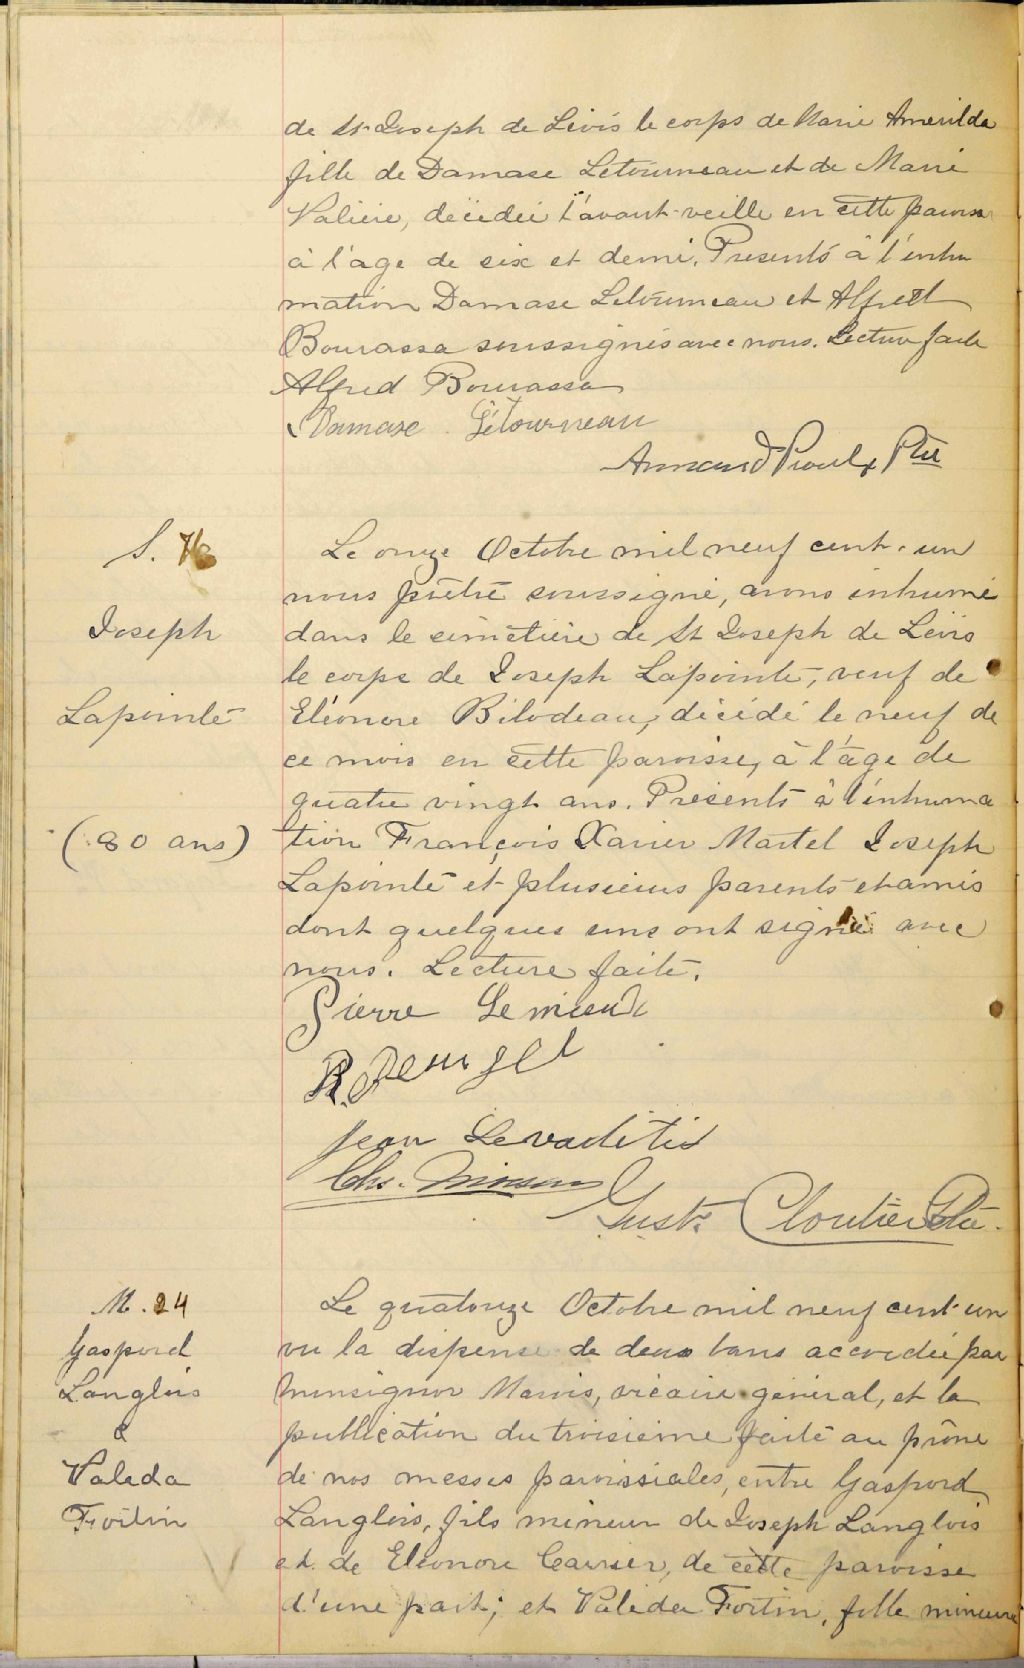 de St Joseph de Lévis le corps de Marie Amerilda
fille de Damase Letourneau et de Marie
Valière, décédée l'avant-veille en cette paroisse
à l'age de six et demi. Presents à l'inhu
mation Damase Letourneau et Alfred
Bourassa soussignés avec nous. Lecture faite
Alfred Bourassa
Damase Létourneau
Armand Proulx Ptre
S.
Joseph
Lapointe
(80 ans)
Le onze Octobre mil neuf cent-un
nous prêtre soussigné, avons inhumé
dans le cimetière de St Joseph de Lévis
le corps de Joseph Lapointe, veuf de
Eléonore Bilodeau, décédé le neuf de
ce mois en cette paroisse, à l'âge de
quatre vingt ans. Présents à l'inhuma
tion François Xavier Martel Joseph
Lapointe et plusieurs parents et amis
dont quelques uns ont signé avec
nous. Lecture faite.
Pierre Lemieux
Jean Levaditis
Chs.
Gust. Cloutier Ptre.
M. 24
Gaspord
Langlois
&
Valeda
Fortin
Le quatorze Octobre mil neuf cent-un
vu la dispense de deux bans accordée par
monsignor Marois, vicaire général, et la
publication du troisième faite au prône
de nos messes paroissiales, entre Gaspord
Langlois, fils mineur de Joseph Langlois
et de Eléonore Carrier, de cette paroisse
d'une part; et Valeda Fortin, fille mineure